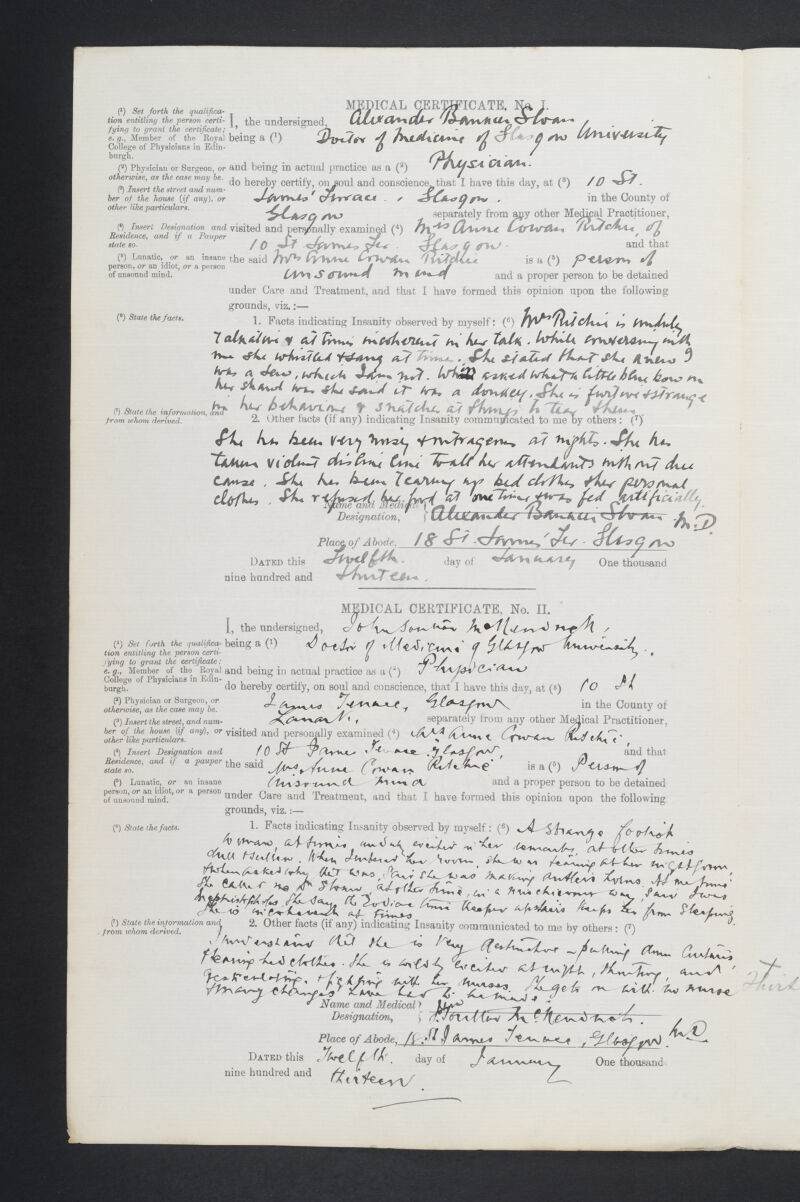 MEDICAL CERTIFICATE, No. I.
(1) Set forth the qualifica-
tion entitling the person certi-
fying to grant the certificate;
e.g., Member of the Royal
College of Physicians in Edin-
burgh.
(2) Physician or Surgeon, or
otherwise, as the case may be.
(3) Insert the street and num-
ber of the house (if any), or
other like particulars.
(4) Insert Designation and
Residence, and if a Pauper
state so.
(5) Lunatic, or an insane
person, or an idiot, or a person
of unsound mind.
(6) State the facts.
(7) State the information, and
from whom derived.
I, the undersigned, Alexander Sloan
being a (1) Doctor of Medicine of Glasgow University
and being in actual practice as a (2) Physician.
do hereby certify, on soul and conscience, that I have this day, at (3) 10 St.
James' Terrace, Glasgow. in the County of
Glasgow separately from any other Medical Practitioner,
visited and personally examined (4) Mrs Anne Cowan Ritchie, of
10 St James Ter. Glasgow. and that
the said Mrs Anne Cowan Ritchie is a (5) person of
unsound mind and a proper person to be detained
under Care and Treatment, and that I have formed this opinion upon the following
grounds, viz.:—
1. Facts indicating Insanity observed by myself: (6) Mrs Ritchie is unduly
talkative & at times incoherent in her talk. While conversing with
me she whistled & sang at times. She stated that she knew I
was a Jew, which I am not. When asked what a little blue bow on
her shawl was she said it was a donkey. She is furtive & strange
in her behaviour & snatches at things to tear them
2. Other facts (if any) indicating Insanity communicated to me by others: (7)
She has been very noisy & outrageous at nights. She has
taken violent dislike to all her attendants without due
cause. She has been tearing up bed clothes & her personal
clothes. She refused her food at one time & was fed artificially.
Name and Medical
Designation, Alexander Sloan M.D.
Place of Abode, 18 St. James' Ter. Glasgow
DATED this Twelfth day of January One thousand
nine hundred and thirteen.
MEDICAL CERTIFICATE, No. II.
(1) Set forth the qualifica-
tion entitling the person certi-
fying to grant the certificate;
e.g., Member of the Royal
College of Physicians in Edin-
burgh.
(2) Physician or Surgeon, or
otherwise, as the case may be.
(3) Insert the street, and num-
ber of the house (if any), or
other like particulars.
(4) Insert Designation and
Residence, and if a pauper
state so.
(5) Lunatic, or an insane
person, or an idiot, or a person
of unsound mind.
(6) State the facts.
(7) State the information and
from whom derived.
I, the undersigned, John Souttar McKendrick,
being a (1) Doctor of Medicine of Glasgow University.
and being in actual practice as a (2) Physician
do hereby certify, on soul and conscience, that I have this day, at (3) 10 St
James Terrace, Glasgow in the County of
Lanark, separately from any other Medical Practitioner,
visited and personally examined (4) Mrs Anne Cowan Ritchie,
10 St James Terrace Glasgow, and that
the said Mrs Anne Cowan Ritchie is a (5) Person of
unsound mind and a proper person to be detained
under Care and Treatment, and that I have formed this opinion upon the following
grounds, viz.:—
1. Facts indicating Insanity observed by myself: (6) A strange foolish
woman, at times unduly excited in her remarks, at other times
dull & sullen. When I entered her room, she was tearing at her nightgown,
& when asked why that was, said she was making antlers horns. At one time
she called me Dr Sloan, at other time, in a mischievous way, said I was
Mephistopheles. She says the Zodiac keeper upstairs keeps her from sleeping.
She is incoherent at times.
2. Other facts (if any) indicating Insanity communicated to me by others: (7)
I understand that she is very destructive – pulling down curtains
& tearing bedclothes. She is wildly excited at night, shouting, and
gesticulating, & fighting with her nurses. She gets on with no nurse
& many changes have had to be made.
Name and Medical
Designation, Jno Souttar McKendrick. M.D.
Place of Abode, 18 St James Terrace, Glasgow.
DATED this Twelfth day of January One thousand
nine hundred and thirteen.